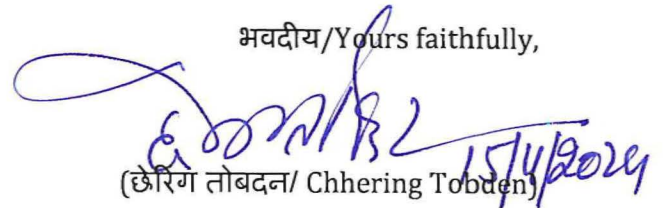 भवदीय/Yours faithfully,
15/4/2024
(छेरिंग तोबदन/ Chhering Tobden)